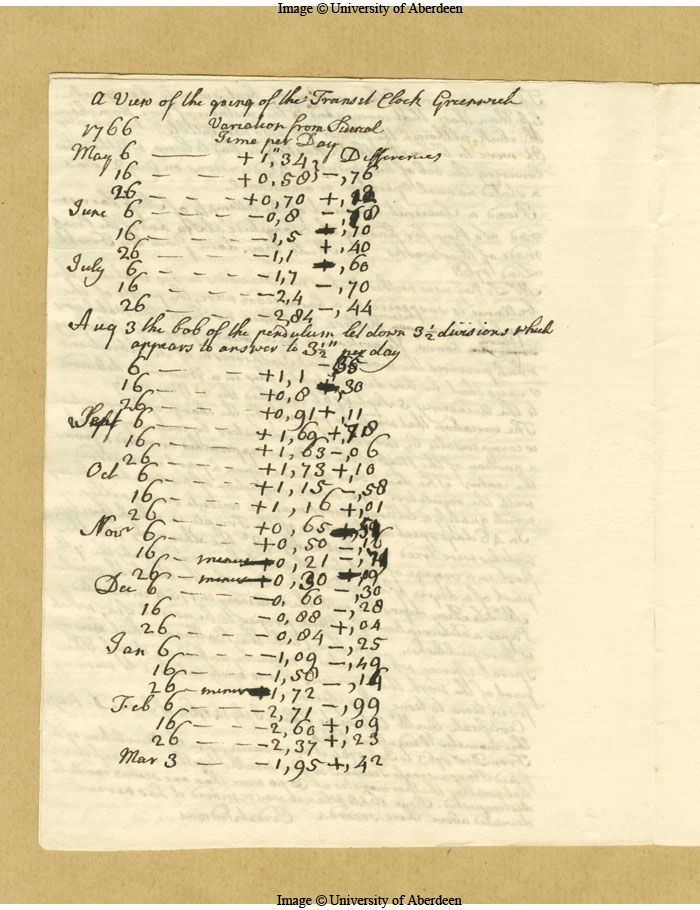 Image © University of Aberdeen
A View of the going of the Transit Clock Greenwich
1766 Variation from Siderial
Time per Day
May 6 — + 1",34, Differences
16 - - +0,58 -,76
26 - - +0,70 +,12
June 6 - - - -0,8
16 - - - -1,5 ,70
26 - - - -1,1 +,40
July 6 - - - -1,7 ,60
16 - - - -2,4 -,70
26 - - - -2,84 -,44
Aug 3 the bob of the pendulum let down 3½ divisions which
appears to answer to 3½" per day
6 - - - +1,1
16 - - - +0,8 ,30
26 - - - +0,91 +,11
Sept 6 - - - +1,69 +,78
16 - - - +1,63 -,06
26 - - - +1,73 +,10
Oct 6 - - - +1,15 -,58
16 - - - +1,16 +,01
26 - - - +0,65
Novr 6 - - - +0,50
16 - minus 0,21 -,71
26 - minus 0,30 ,09
Dec 6 - - - -0,60 -,30
16 - - - -0,88 -,28
26 - - - -0,84 +,04
Jan 6 - - - -1,09 -,25
16 - - - -1,58 -,49
26 - minus 1,72 -,14
Feb 6 - - - -2,71 -,99
16 - - - -2,60 +,09
26 - - - -2,37 +,23
Mar 3 - - -1,95 +,42
Image © University of Aberdeen